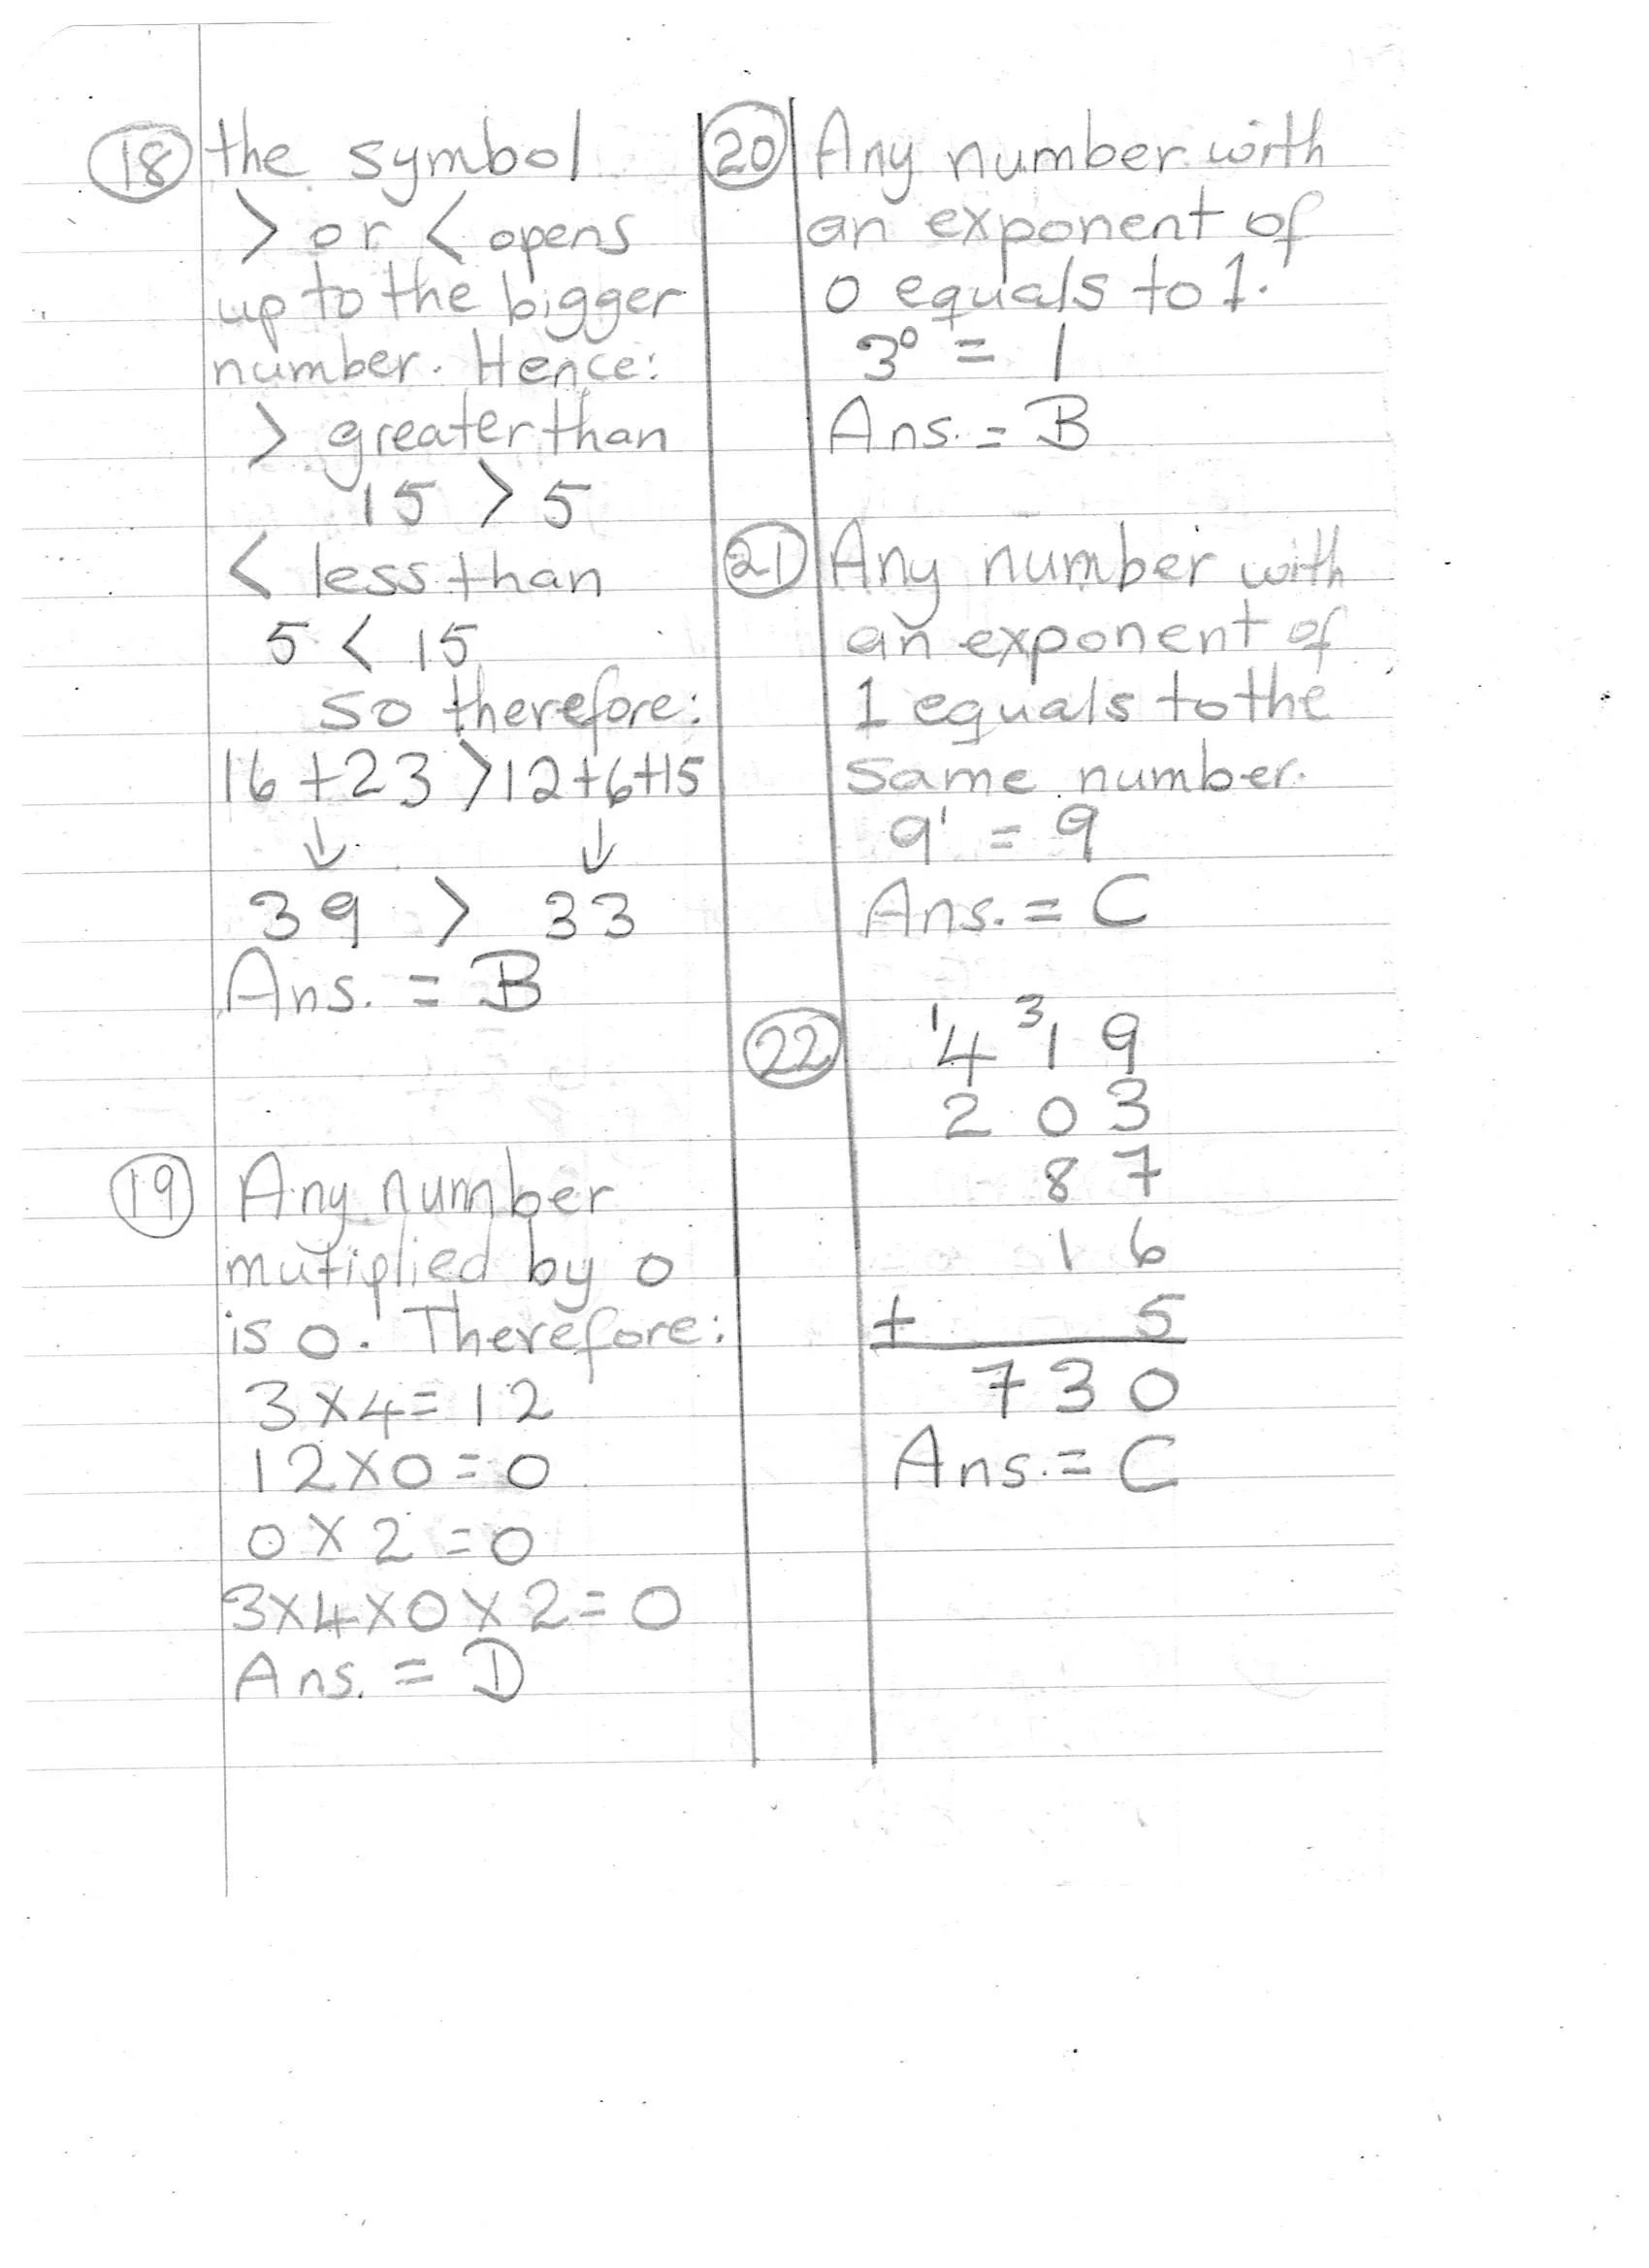 18 the symbol
> or < opens
up to the bigger
number. Hence:
> greater than
15 > 5
< less than
5 < 15
so therefore:
16 + 23 > 12+6+15
↓ ↓
39 > 33
Ans. = B
19 Any number
mutiplied by 0
is 0. Therefore:
3 x 4 = 12
12 x 0 = 0
0 x 2 = 0
3 x 4 x 0 x 2 = 0
Ans. = D
20 Any number with
an exponent of
0 equals to 1.
3⁰ = 1
Ans. = B
21 Any number with
an exponent of
1 equals to the
same number.
9¹ = 9
Ans. = C
1 3
22 4 1 9
2 0 3
8 7
1 6
+ 5
7 3 0
Ans. = C